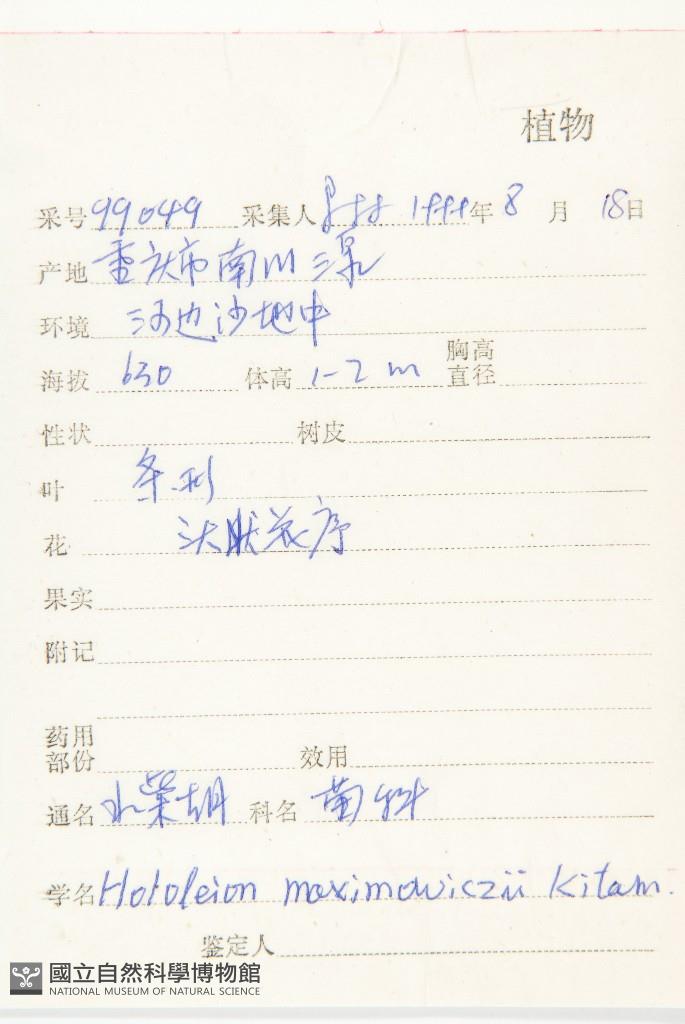 植物
采号 99049 采集人 1999年 8 月 18日
产地 重庆市南川三泉
环境 河边沙地中
海拔 630 体高 1-2 m 胸高直径
性状 树皮
叶 条形
花 头状花序
果实
附记
药用部份 效用
通名 水柴胡 科名 菊科
学名 Hololeion maximowiczii Kitam.
鉴定人
國立自然科學博物館
NATIONAL MUSEUM OF NATURAL SCIENCE